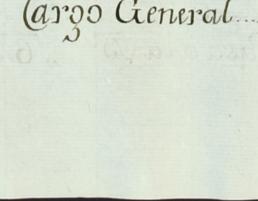 Cargo General....